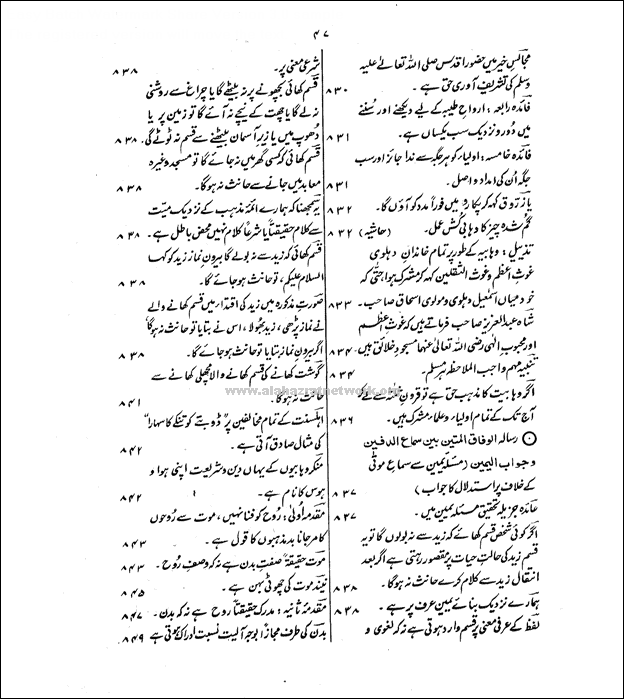 ۴۷
مجالسِ خیر میں حضور اقدس صلی اللہ تعالےٰ علیہ
وسلم کی تشریف آوری حق ہے ۔ ۸۳۰
فائدہ رابعہ ، ارواحِ طیبہ کے لیے دیکھنے اور سُننے
میں دُور و نزدیک سب یکساں ہے ۔ ۸۳۱
فائدہ خامسہ : اولیاء کو ہر جگہ سے ندا جائز اور سب
جگہ اُن کی امداد و اصل ۔ ۸۳۱
یا زرّوق کہہ کر پکارو میں فوراً مدد کو آؤں گا ۔ ۸۳۲
گُم شدہ چیز کا وہابی کُش عمل ۔ (حاشیہ) ۸۳۲
تذییل : وہابیہ کے طور پر تمام خاندانِ دہلوی
غوثِ اعظم و غوث الثقلین کہہ کر مشرک ہوا حتّٰی کہ
خود میاں اسمٰعیل دہلوی و مولوی اسحاق صاحب ۔ ۸۳۳
شاہ عبدالعزیز صاحب فرماتے ہیں کہ غوثِ اعظم
اور محبوبِ الٰہی رضی اللہ تعالیٰ عنہما مسجودِ خلائق ہیں ۔ ۸۳۴
تنبیہ مہم واجب الملاحظہ ہر مسلم ۔ ۸۳۴
اگر وہابیت کا مذہب حق ہے تو قرونِ ثلٰثہ سے لے کر
آج تک کے تمام اولیاء و علماء مشرک ہیں ۔ ۸۳۶
رسالہ الوفاق المتین بین سماع الدفین
و جواب الیمین (مسئلہ یمین سے سماعِ موتٰی
کے خلاف پر استدلال کا جواب) ۸۳۷
عائدہ جزیلہ تحقیق مسئلہ یمین میں ۔ ۸۳۷
اگر کوئی شخص قسم کھائے کہ زید سے نہ بولوں گا تو یہ
قسم زید کی حالتِ حیات پر مقصور رہتی ہے اگر بعد
انتقال زید سے کلام کرے حانث نہ ہوگا ۔ ۸۳۸
ہمارے نزدیک بنائے یمین عرف پر ہے ۔ ۸۳۸
لفظ کے عرفی معنی پر قسم وارد ہوتی ہے نہ کہ لغوی و
شرعی معنی پر ۔ ۸۳۸
قسم کھائی کہ بچھونے پر نہ بیٹھے گا یا چراغ سے روشنی
نہ لے گا یا چھت کے نیچے نہ آئے گا تو زمین پر یا
دُھوپ میں یا زیرِ آسمان بیٹھنے سے قسم نہ ٹوٹے گی ۔ ۸۳۸
قسم کھائی کہ کسی گھر میں نہ جائے گا تو مسجد وغیرہ
معابد میں جانے سے حانث نہ ہوگا ۔ ۸۳۸
یہ سمجھنا کہ ہمارے ائمہ مذہب کے نزدیک میّت
سے کلام حقیقتاً یا شرعاً کلام نہیں محض باطل ہے ۔ ۸۳۸
قسم کھائی کہ زید سے نہ بولے گا بیرونِ نماز زید کو کہا
السلام علیکم ، تو حانث ہو جائے گا ۔ ۸۳۸
صورتِ مذکورہ میں زید کی اقتداء میں قسم کھانے والے
نے نماز پڑھی ، زید بھُولا ، اس نے بتایا تو حانث نہ ہوگا
اگر بیرونِ نماز بتایا تو حانث ہو جائے گا ۔ ۸۳۸
گوشت کھانے کی قسم کھانے والا مچھلی کھانے سے
حانث نہ ہوگا ۔ ۸۴۱
www.alahazratnetwork.org
اہلسنت کے تمام مخالفین پر "ڈوبتے کو تنکے کا سہارا"
کی مثال صادق آتی ہے ۔ ۸۴۲
منکر وہابیوں کے یہاں دین و شریعت اپنی ہوا و
ہوس کا نام ہے ۔ ۸۴۲
مقدمہ اُولٰی : رُوح کو فنا نہیں ، موت سے رُوحوں
کا مر جانا بد مذہبوں کا قول ہے ۔ ۸۴۳
موت حقیقۃً صفتِ بدن ہے نہ کہ وصفِ رُوح ۔ ۸۴۳
نیند موت کی چھوٹی بہن ہے ۔ ۸۴۵
مقدمہ ثانیہ : مدرک حقیقتاً روح ہے نہ کہ بدن ۔ ۸۴۷
بدن کی طرف مجازاً بوجہ آلیت نسبتِ ادراک ہوتی ہے ۸۴۹